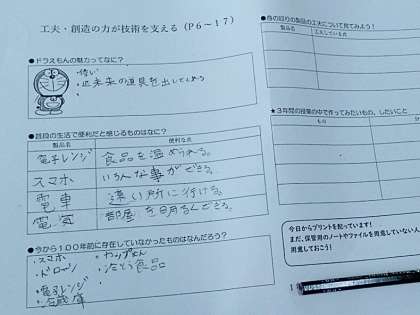 工夫・創造の力が技術を支える(P6~17)
●ドラえもんの魅力ってなに?
・偉い
・近未来の道具を出してくれる
●普段の生活で便利だと感じるものはなに?
製品名 便利な点
電子レンジ 食品を温められる。
スマホ いろんな事ができる。
電車 遠い所に行ける。
電気 部屋を明るくできる。
●今から100年前に存在していなかったものはなんだろう?
・スマホ ・カップめん
・ドローン ・冷とう食品
・電子レンジ
・冷蔵庫
●身の回りの製品の工夫について見てみよう!
製品名 工夫している点
★3年間の授業の中で作ってみたいもの、したいこと
もの
今日からプリントを配っています!
まだ、保管用のノートやファイルを用意していない人
用意しておこう!